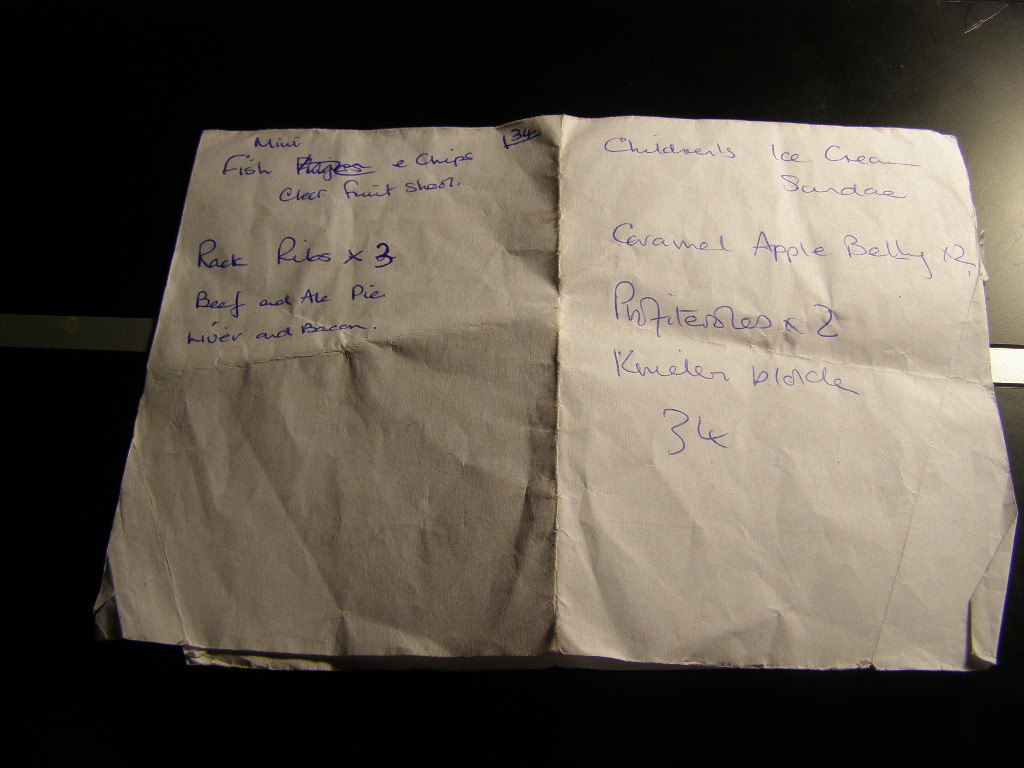 Mini
Fish Fingers e Chips
Clear fruit shoot.
34
Rack Ribs x 3
Beef and Ale Pie
Liver and Bacon.
Children's Ice Cream
Sundae
Caramel Apple Betty x2
Profiteroles x 2
34